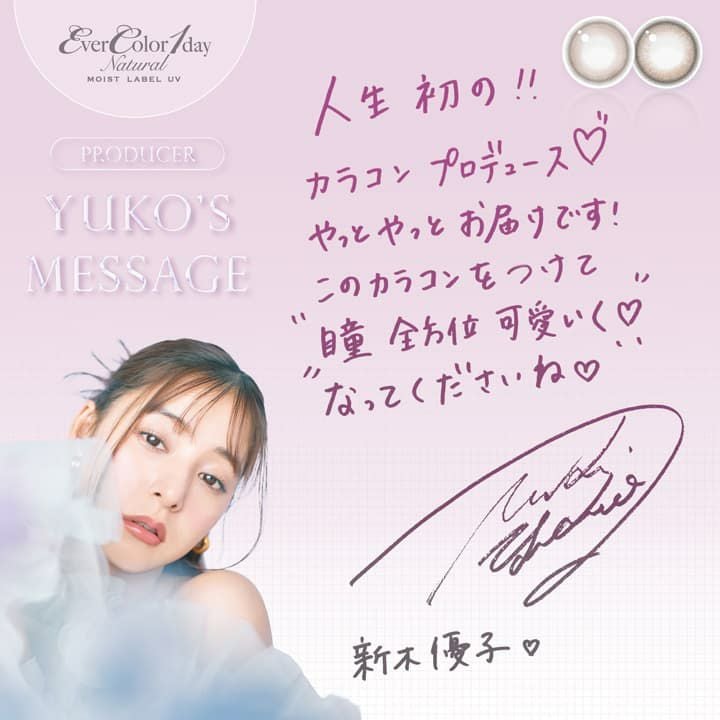 EverColor1day
Natural
MOIST LABEL UV
PRODUCER
YUKO'S
MESSAGE
人生 初の!!
カラコン プロデュース♡
やっとやっと お届けです!
このカラコンをつけて
"瞳 全方位 可愛いく♡"
"なってくださいね♡"
新木優子♡